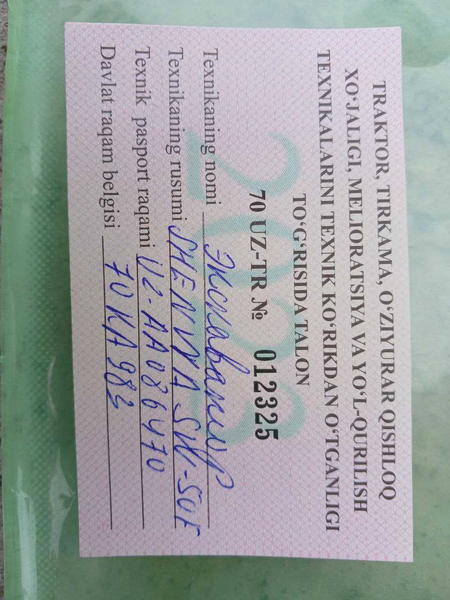 TRAKTOR, TIRKAMA, O‘ZIYURAR QISHLOQ
XO‘JALIGI, MELIORATSIYA VA YO‘L-QURILISH
TEXNIKALARINI TEXNIK KO‘RIKDAN O‘TGANLIGI
TO‘G‘RISIDA TALON
70 UZ-TR № 012325
Texnikaning nomi Экскаватор
Texnikaning rusumi SHENWA SW-50E
Texnik pasport raqami UZ-AA 086470
Davlat raqam belgisi 70 KA 983